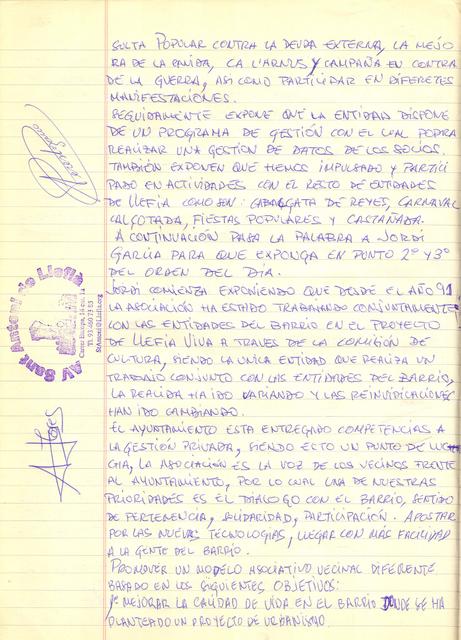 SULTA POPULAR CONTRA LA DEUDA EXTERNA, LA MEJO
RA DE LA SANIDA, CA L'ARNUS Y CAMPAÑA EN CONTRA
DE LA GUERRA, ASI COMO PARTICIPAR EN DIFERETES
MANIFESTACIONES.
SEGUIDAMENTE EXPONE QUE LA ENTIDAD DISPONE
DE UN PROGRAMA DE GESTIÓN CON EL CUAL PODRA
REALIZAR UNA GESTION DE DATOS DE LOS SOCIOS.
TAMBIÉN EXPONEN QUE HEMOS IMPULSADO Y PARTICI
PADO EN ACTIVIDADES CON EL RESTO DE ENTIDADES
DE LLEFIA COMO SON: CABALGATA DE REYES, CARNAVAL
CALÇOTADA, FIESTAS POPULARES Y CASTAÑADA.
A CONTINUACIÓN PASA LA PALABRA A JORDI
GARCIA PARA QUE EXPONGA EN PUNTO 2º Y 3º
DEL ORDEN DEL DIA.
JORDI COMIENZA EXPONIENDO QUE DESDE EL AÑO 91
LA ASOCIACIÓN HA ESTADO TRABAJANDO CONJUNTAMENTE
CON LAS ENTIDADES DEL BARRIO EN EL PROYECTO
DE LLEFIA VIVA A TRAVES DE LA COMISIÓN DE
CULTURA, SIENDO LA UNICA ENTIDAD QUE REALIZA UN
TRABAJO CONJUNTO CON LAS ENTIDADES DEL BARRIO,
LA REALIDA HA IDO VARIANDO Y LAS REINVIDICACIONES
HAN IDO CAMBIANDO.
EL AYUNTAMIENTO ESTA ENTREGADO COMPETENCIAS A
LA GESTIÓN PRIVADA, SIENDO ESTO UN PUNTO DE LU
CHA, LA ASOCIACIÓN ES LA VOZ DE LOS VECINOS FRENTE
AL AYUNTAMIENTO, POR LO CUAL UNA DE NUESTRAS
PRIORIDADES ES EL DIALOGO CON EL BARRIO, SENTIDO
DE PERTENENCIA, SOLIDARIDAD, PARTICIPACIÓN. APOSTAR
POR LAS NUEVAS TECNOLOGIAS, LLEGAR CON MÁS FACILIDAD
A LA GENTE DEL BARRIO.
PROMOVER UN MODELO ASOCIATIVO VECINAL DIFERENTE
BASADO EN LOS SIGUIENTES OBJETIVOS:
1º MEJORAR LA CALIDAD DE VIDA EN EL BARRIO DONDE SE HA
PLANTEADO UN PROYECTO DE URBANISMO
AV Sant Antoni de Llefià